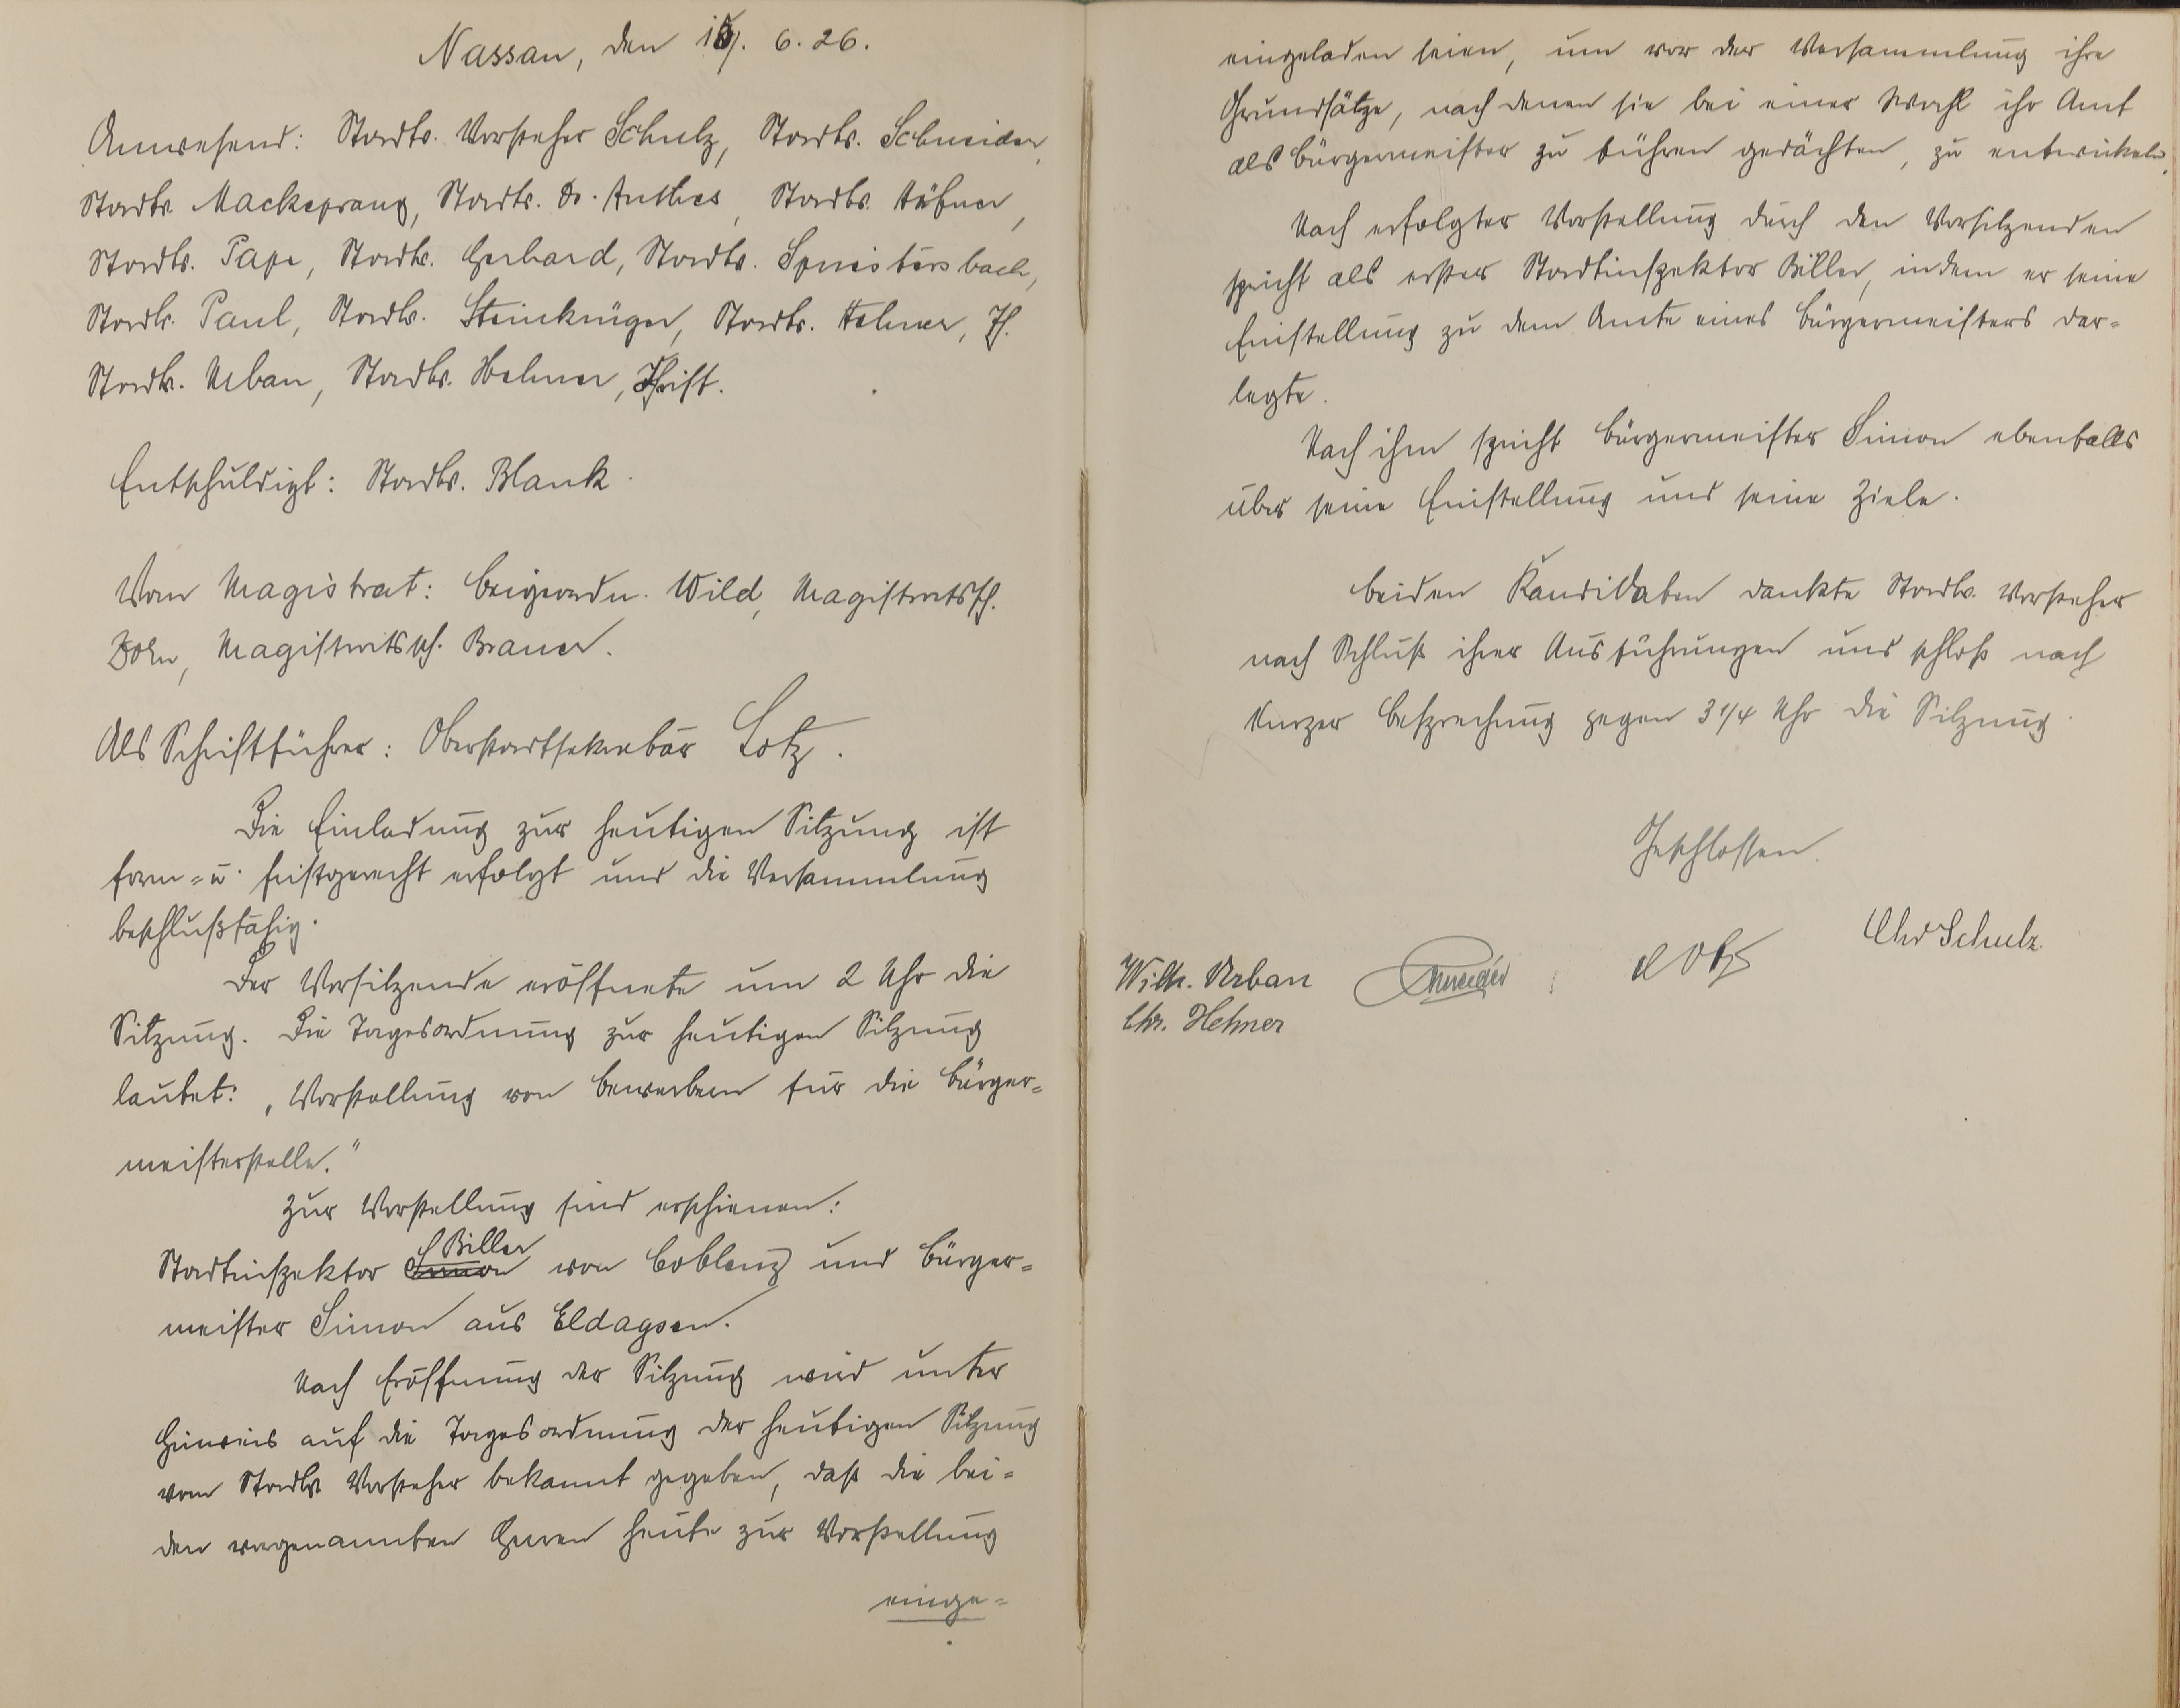 Nassau, den 15. 6. 26.
Anwesend: Stadtv. Vorsteher Schulz, Stadtv. Schneider,
Stadtv. Mackeprang, Stadtv. Dr. Anthes, Stadtv. Hübner,
Stadtv. Pape, Stadtv. Gerhard, Stadtv.
Stadtv. Paul, Stadtv. Steinkrüger, Stadtv. Hehner, H.
Stadtv. Urban, Stadtv. Hehner, Christ.
Entschuldigt: Stadtv. Blank.
Vom Magistrat: Beigeordn. Wild, Magistratssch.
Born, Magistratssch. Brauer.
Als Schriftführer: Oberstadtsekretär Lotz.
Die Einladung zur heutigen Sitzung ist
form- u. fristgerecht erfolgt und die Versammlung
beschlußfähig.
Der Vorsitzende eröffnete um 2 Uhr die
Sitzung. Die Tagesordnung zur heutigen Sitzung
lautet: „Vorstellung von Bewerbern für die Bürger=
meisterstelle."
Zur Vorstellung sind erschienen:
Biller
Stadtinspektor Simon von Coblenz und Bürger=
meister Simon aus Eldagsen.
Nach Eröffnung der Sitzung wird unter
Hinweis auf die Tagesordnung der heutigen Sitzung
vom Stadtv. Vorsteher bekannt gegeben, daß die bei=
den vorgenannten Herren heute zur Vorstellung
einge=
eingeladen seien, um vor der Versammlung ihre
Grundsätze, nach denen sie bei einer Wahl ihr Amt
als Bürgermeister zu führen gedächten, zu entwickeln.
Nach erfolgter Vorstellung durch den Vorsitzenden
spricht als erster Stadtinspektor Biller, indem er seine
Einstellung zu dem Amte eines Bürgermeisters dar=
legte.
Nach ihm spricht Bürgermeister Simon ebenfalls
über seine Einstellung und seine Ziele.
Beiden Kandidaten dankte Stadtv. Vorsteher
nach Schluß ihrer Ausführungen und schloß nach
kurzer Besprechung gegen 3 1/4 Uhr die Sitzung.
Geschlossen.
Chr Schulz
Wilh. Urban Lotz
Chr. Hehner